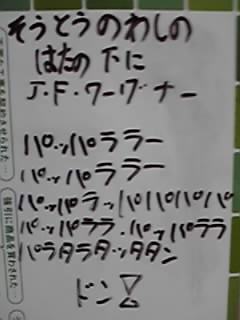 そうとうのわしの
はたの下に
J・F・ワーグナー
パッパララー
パッパララー
パッパラッパパパパパ
パッパララ・パッパララ
パラタラタッタタン
ドン
強引に商品を買わされた…